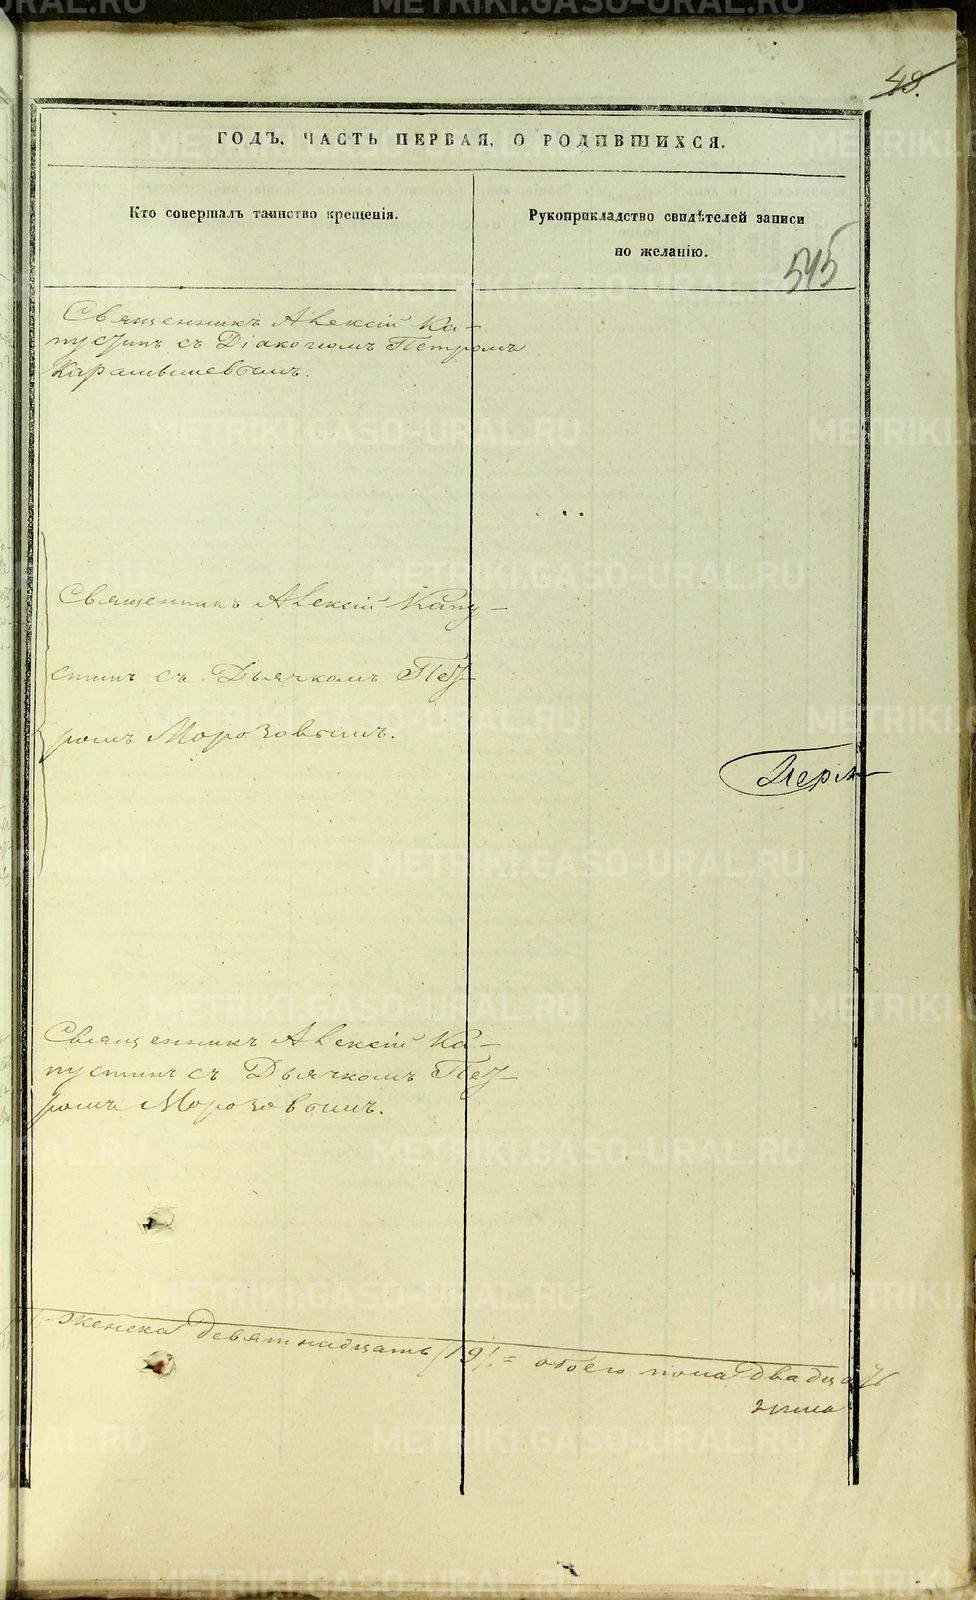 48.
ГОДЪ, ЧАСТЬ ПЕРВАЯ, О РОДИВШИХСЯ.
Кто совершалъ таинство крещенія.
Рукоприкладство свидѣтелей записи
по желанію.
545
Священникъ Алексій Ка-
пустинъ съ Діакономъ Петромъ
Карамышевымъ.
Священникъ Алексій Капу-
стинъ съ Дьячкомъ Пет-
ромъ Морозовымъ.
Священникъ Алексій Ка-
пустинъ съ Дьячкомъ Пет-
ромъ Морозовымъ.
женска девятнадцать (19). = обоего пола двадцать
METRIKI.GASO-URAL.RU